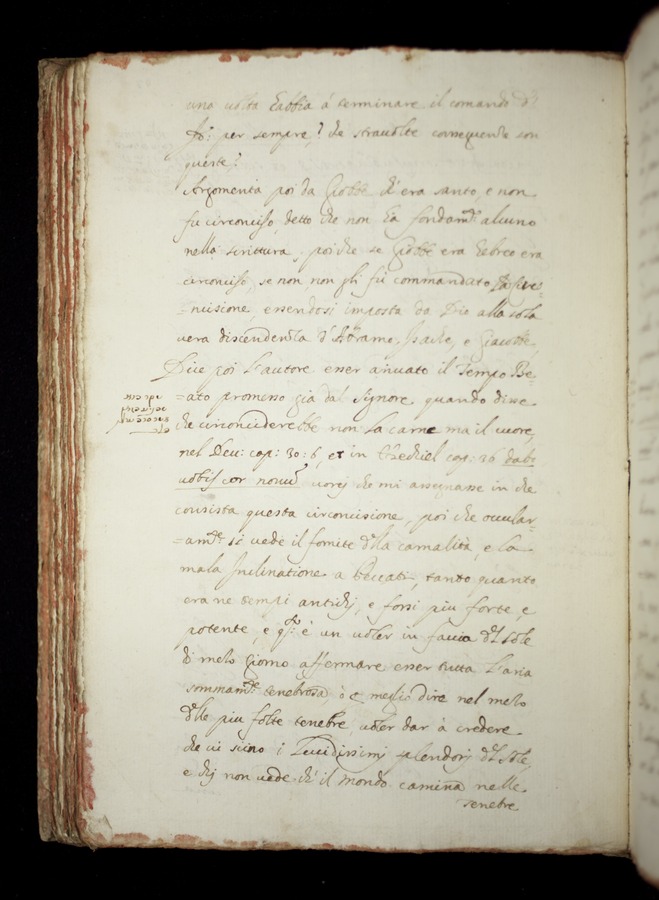 una volta habbia à terminare il comando d'
per sempre? che stravolte conseguenze son
queste?
Argomenta poi da Giobbe ch'era santo, e non
fu circonciso, detto che non ha fondam.to alcuno
nella scrittura, poi che se Giobbe era hebreo era
circonciso, se non non gli fu commandato la circon-
=ncisione essendosi imposta da Dio alla sola
vera discendenza d'Abramo, Isache, e Giacobbe,
Dice poi l'autore esser arivato il tempo Be-
=ato promesso già dal Signore quando disse
che circonciderebbe non la carne ma il cuore,
nel Deu: cap: 30: 6, et in Ezechiel cap: 36 dabo
vobis cor novum vorei che mi assegnasse in che
consista questa circoncisione, poi che ocular-
=am.te si vede il fomite della carnalità, e la
mala Inclinatione a Peccati, tanto quanto
era ne tempi antichi, e forsi più forte, e
potente, e q.to è un voler in faccia del sole
di mezo giorno affermare esser tutta l'aria
sommam.te tenebrosa, ò p meglio dire nel mezo
delle più folte tenebre voler dar à credere
che vi siino i lucidissimi splendori del sole,
e chi non vede ch'il mondo camina nelle
tenebre